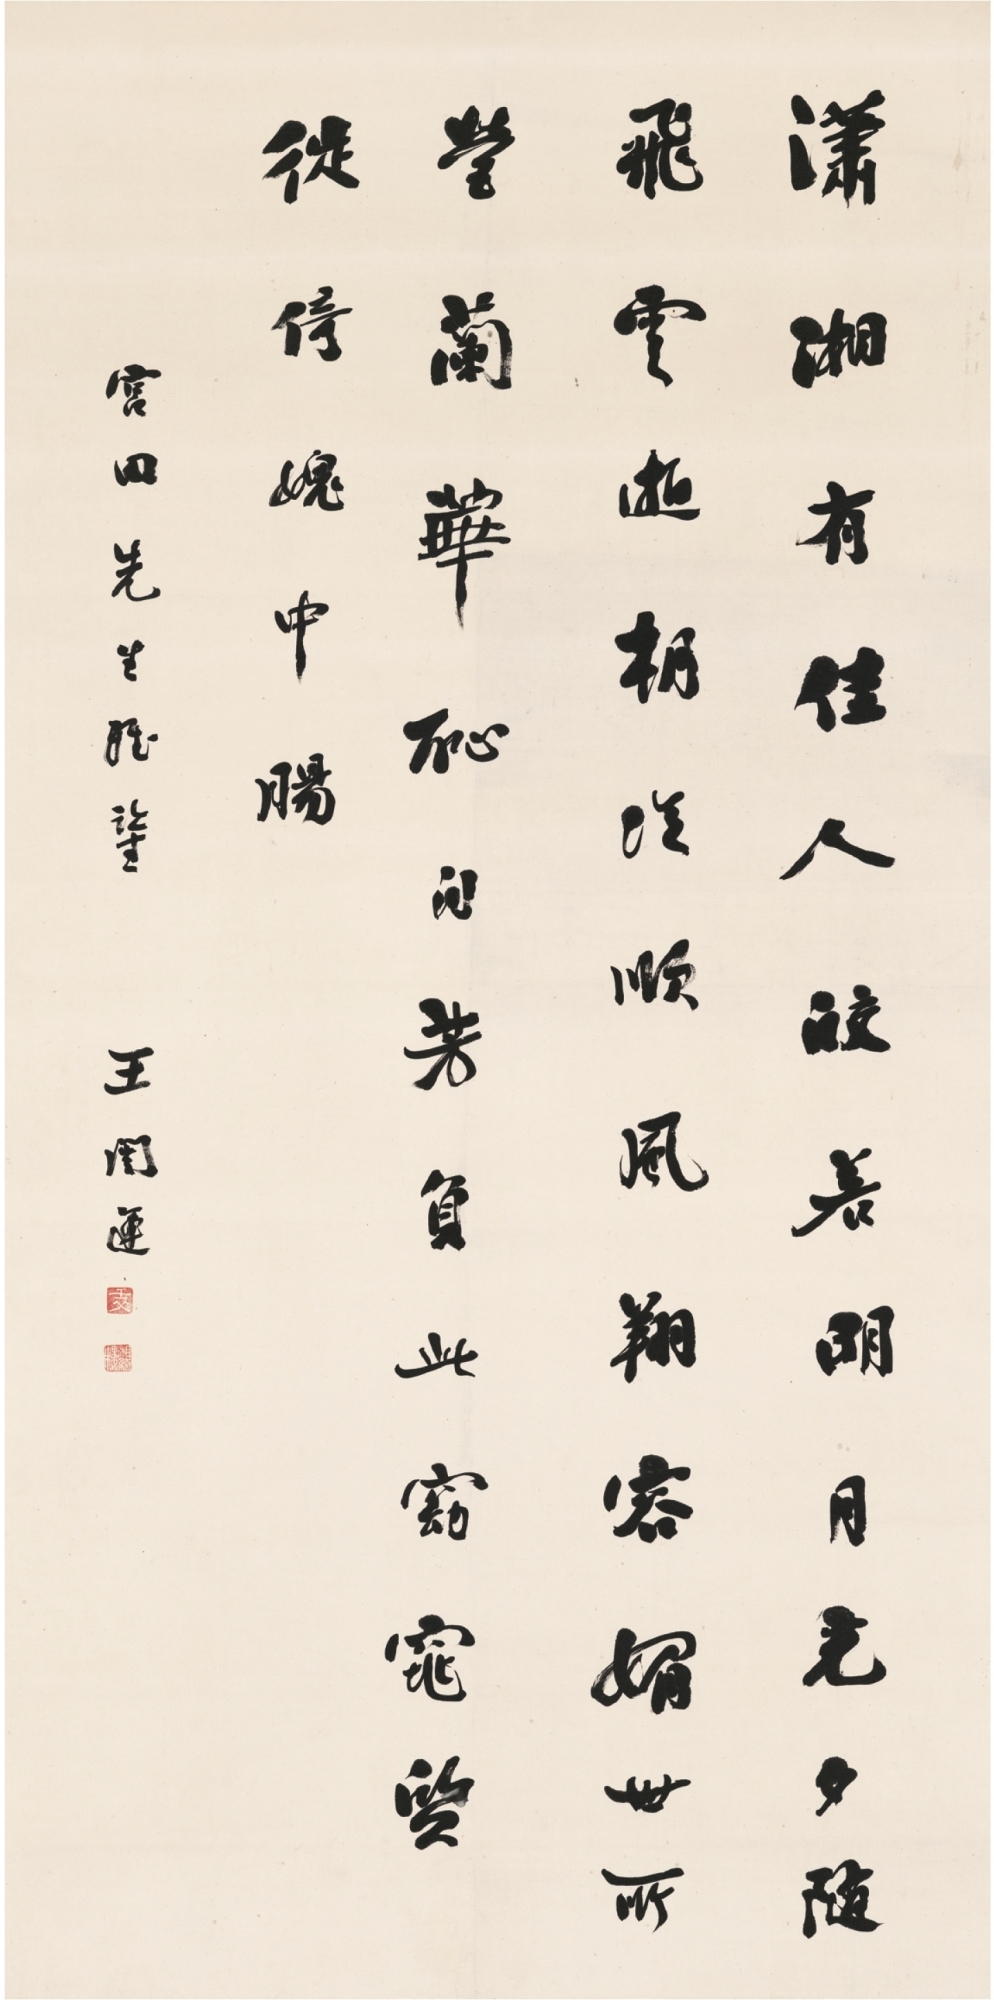 瀟湘有佳人皎若明月光夕隨
飛雲逝朝從順風翔容媚世所
營蘭華恥自芳負此窈窕質
徙倚愧中腸
宮田先生雅鑒 王闓運